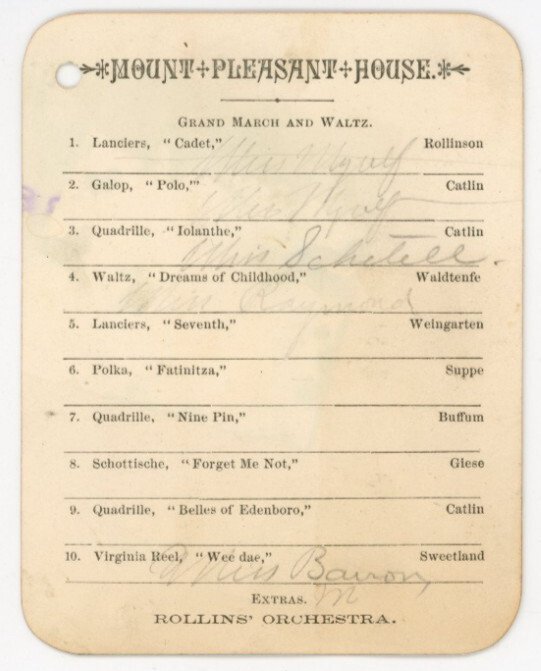 MOUNT PLEASANT HOUSE.
GRAND MARCH AND WALTZ.
1. Lanciers, "Cadet," Rollinson
Miss
2. Galop, "Polo,'" Catlin
Miss
3. Quadrille, "Iolanthe," Catlin
Miss
4. Waltz, "Dreams of Childhood," Waldtenfe
Miss Raymond
5. Lanciers, "Seventh," Weingarten
6. Polka, "Fatinitza," Suppe
7. Quadrille, "Nine Pin," Buffum
8. Schottische, "Forget Me Not," Giese
9. Quadrille, "Belles of Edenboro," Catlin
10. Virginia Reel, "Wee dae," Sweetland
Miss Barron,
EXTRAS.
ROLLINS' ORCHESTRA.